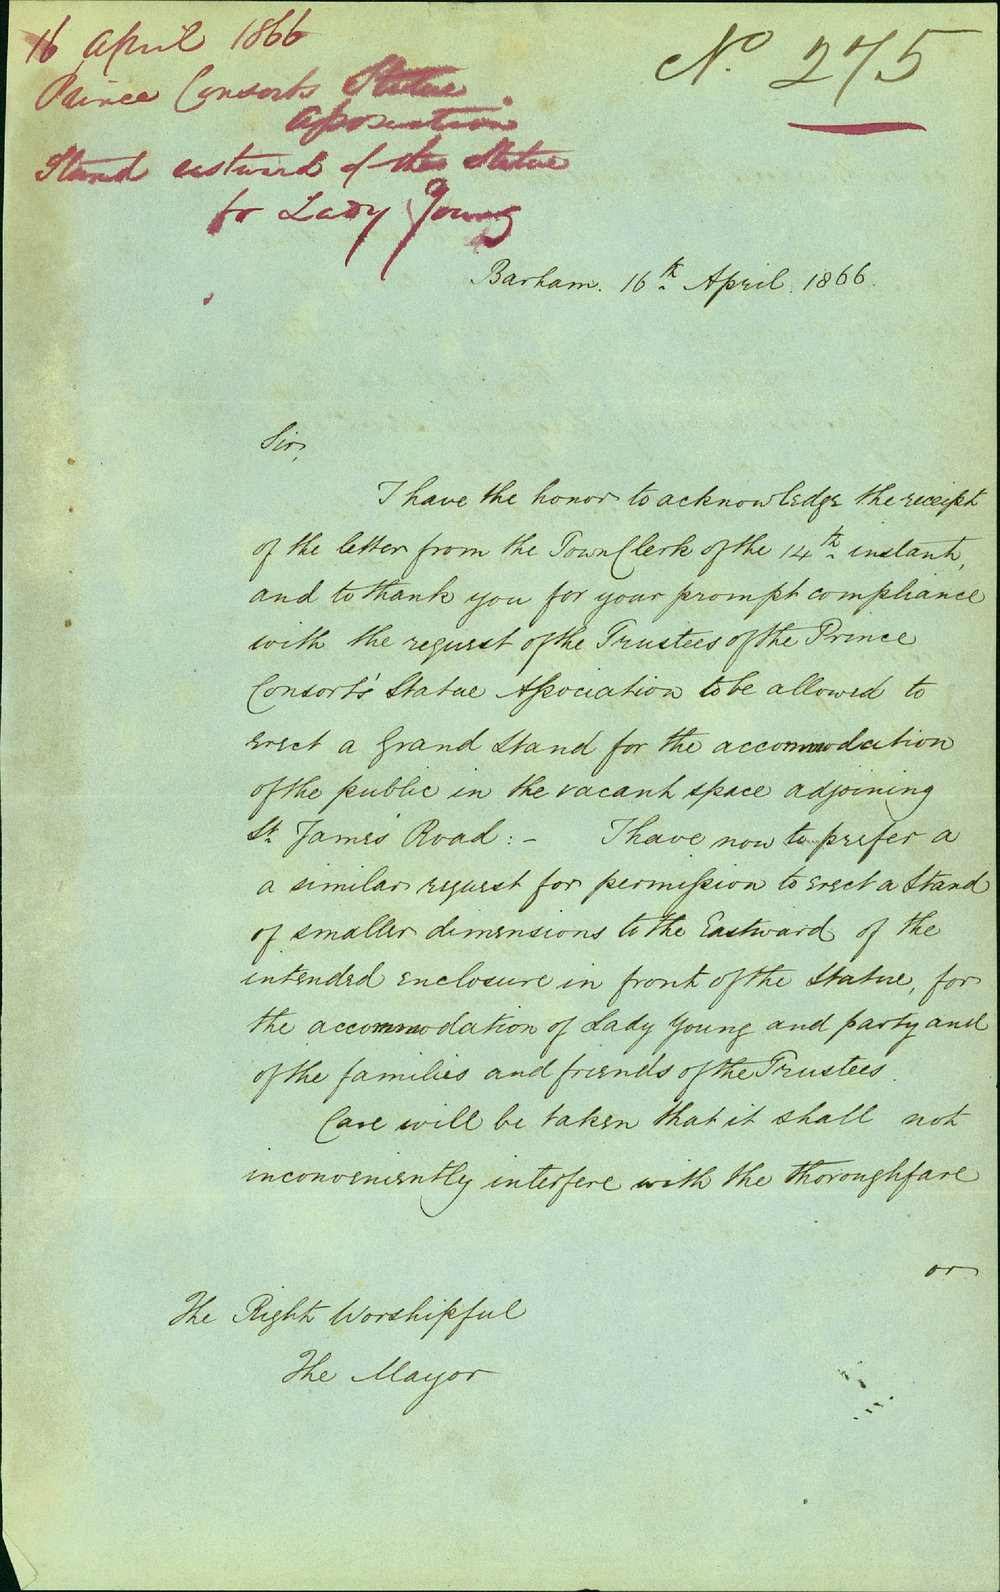 16 April 1866
Prince Consorts Statue
Association
Stand eastward of the Statue
for Lady Young
No 275
Barham. 16th April. 1866.
Sir,
I have the honor to acknowledge the receipt
of the letter from the Town Clerk of the 14th instant,
and to thank you for your prompt compliance
with the request of the Trustees of the Prince
Consort's Statue Association to be allowed to
erect a Grand Stand for the accommodation
of the public in the vacant space adjoining
St. James' Road:- I have now to prefer a
a similar request for permission to erect a Stand
of smaller dimensions to the Eastward of the
intended enclosure in front of the Statue, for
the accommodation of Lady Young and party and
of the families and friends of the Trustees.
Care will be taken that it shall not
inconveniently interfere with the thoroughfare
or
The Right Worshipful
The Mayor